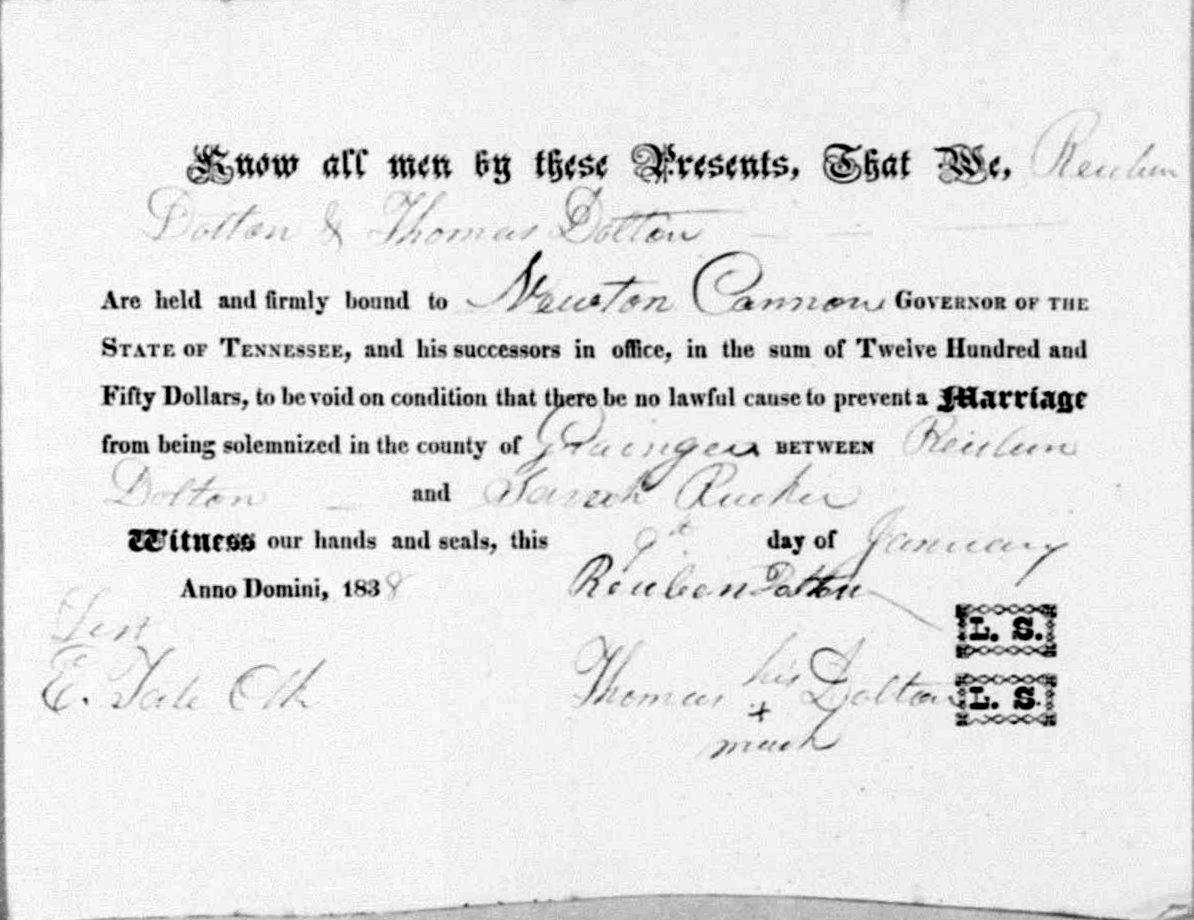 Know all men by these Presents, That We, Reuben
Dolton & Thomas Dolton
Are held and firmly bound to Newton Cannon GOVERNOR OF THE
STATE OF TENNESSEE, and his successors in office, in the sum of Twelve Hundred and
Fifty Dollars, to be void on condition that there be no lawful cause to prevent a Marriage
from being solemnized in the county of Grainger BETWEEN Reuben
Dolton and Sarah Rucker
Witness our hands and seals, this 9th day of January
Anno Domini, 1838 Reuben Dolton
Test L. S.
E. Tate Clk Thomas his Dolton L. S.
+
mark